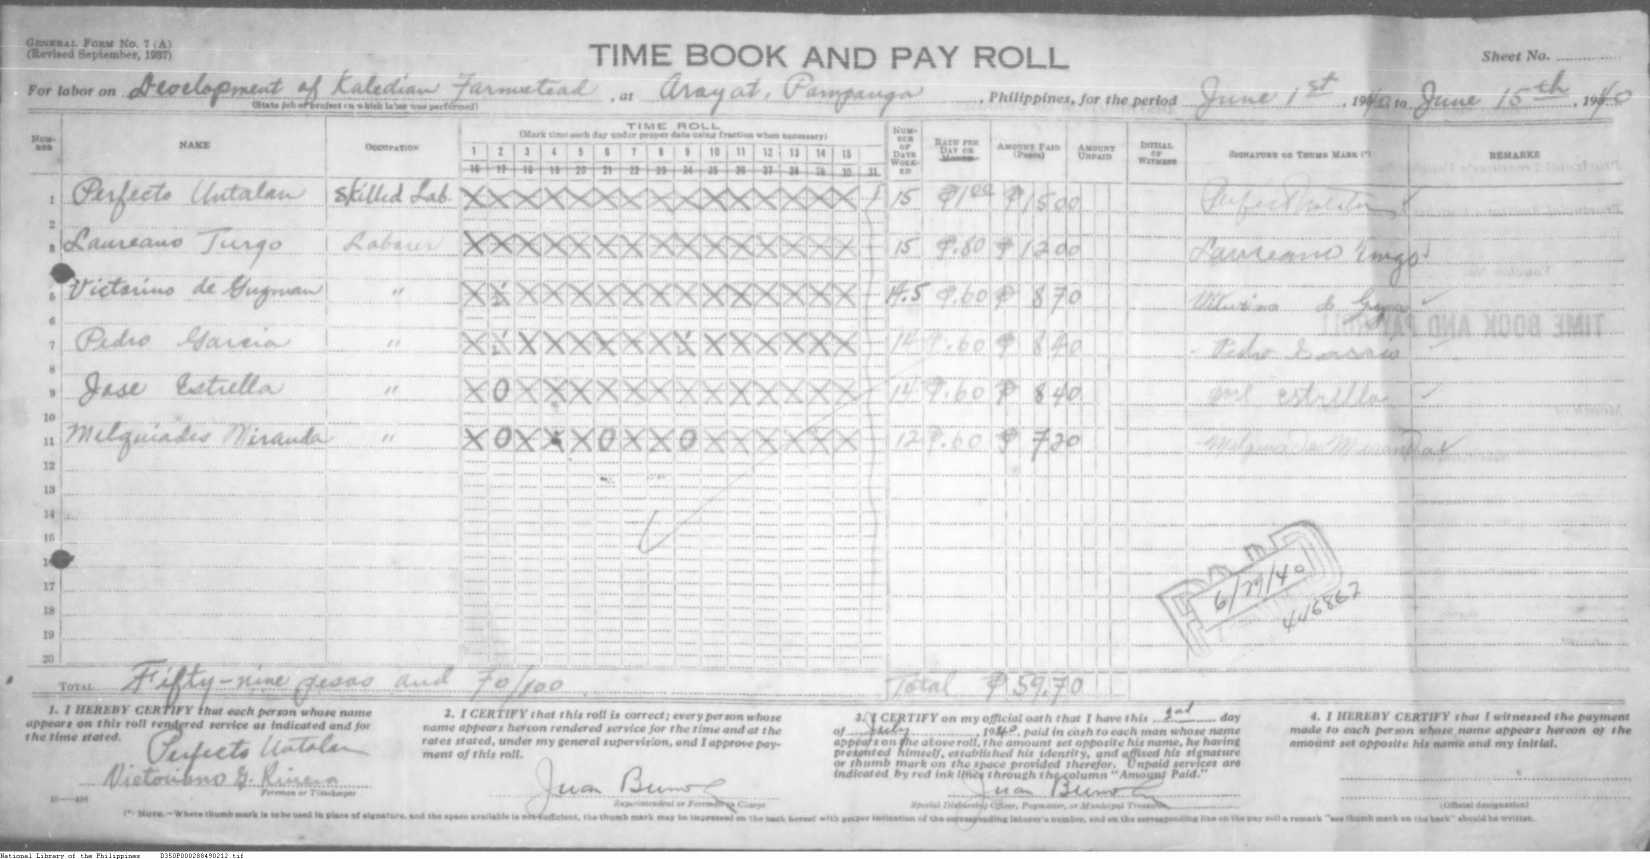 GENERAL FORM NO. 7 (A)
(Revised September, 1937)
TIME BOOK AND PAY ROLL
Sheet No.
For labor on Development of Kaledian Farmstead, at Arayat, Pampanga, Philippines, for the period June 1st, 1940 to June 15th, 1940
(State job or project on which labor was performed)
NUMBER
NAME
OCCUPATION
TIME ROLL
(Mark time each day under proper date using fraction when necessary)
1 2 3 4 5 6 7 8 9 10 11 12 13 14 15
16 17 18 19 20 21 22 23 24 25 26 27 28 29 30 31
NUMBER OF DAYS WORKED
RATE PER DAY OR MONTH
AMOUNT PAID (Pesos)
AMOUNT UNPAID
INITIAL OF WITNESS
SIGNATURE OR THUMB MARK (*)
REMARKS
1 Perfecto Untalan Skilled Lab. X X X X X X X X X X X X X X X 15 ₱1.00 ₱ 15 00
2
3 Laureano Turgo Laborer X X X X X X X X X X X X X X X 15 ₱.80 ₱ 12 00 Laureano
5 Victorino de Guzman " 14.5 ₱.60 ₱ 8 70
6
7 Pedro Garcia " 14 ₱.60 ₱ 8 40 Pedro
8
9 Jose Estrella " X O X X X X X X X X X X X X X 14 ₱.60 ₱ 8 40 Jose Estrella
10
11 Melquiades Miranda " X O X X X O X X O X X X X X X 12 ₱.60 ₱ 7 20 Melquiades Miranda
12
13
14
15
16
17
18
19
20
6/29/40
446867
TOTAL Fifty-nine pesos and 70/100 Total ₱ 59.70
1. I HEREBY CERTIFY that each person whose name
appears on this roll rendered service as indicated and for
the time stated.
Perfecto Untalan
Victoriano G. Rivera
Foreman or Timekeeper
2. I CERTIFY that this roll is correct; every person whose
name appears hereon rendered service for the time and at the
rates stated, under my general supervision, and I approve pay-
ment of this roll.
Juan
Superintendent or Foreman in Charge
3. I CERTIFY on my official oath that I have this 2nd day
of July, 1940, paid in cash to each man whose name
appears on the above roll, the amount set opposite his name, he having
presented himself, established his identity, and affixed his signature
or thumb mark on the space provided therefor. Unpaid services are
indicated by red ink lines through the column "Amount Paid."
Juan
Special Disbursing Officer, Paymaster, or Municipal Treasurer
4. I HEREBY CERTIFY that I witnessed the payment
made to each person whose name appears hereon of the
amount set opposite his name and my initial.
(Official designation)
(*) NOTE.—Where thumb mark is to be used in place of signature, and the space available is not sufficient, the thumb mark may be impressed on the back hereof with proper indication of the corresponding laborer's number, and on the corresponding line on the pay roll a remark "see thumb mark on the back" should be written.
National Library of the Philippines D350P000288490212.tif